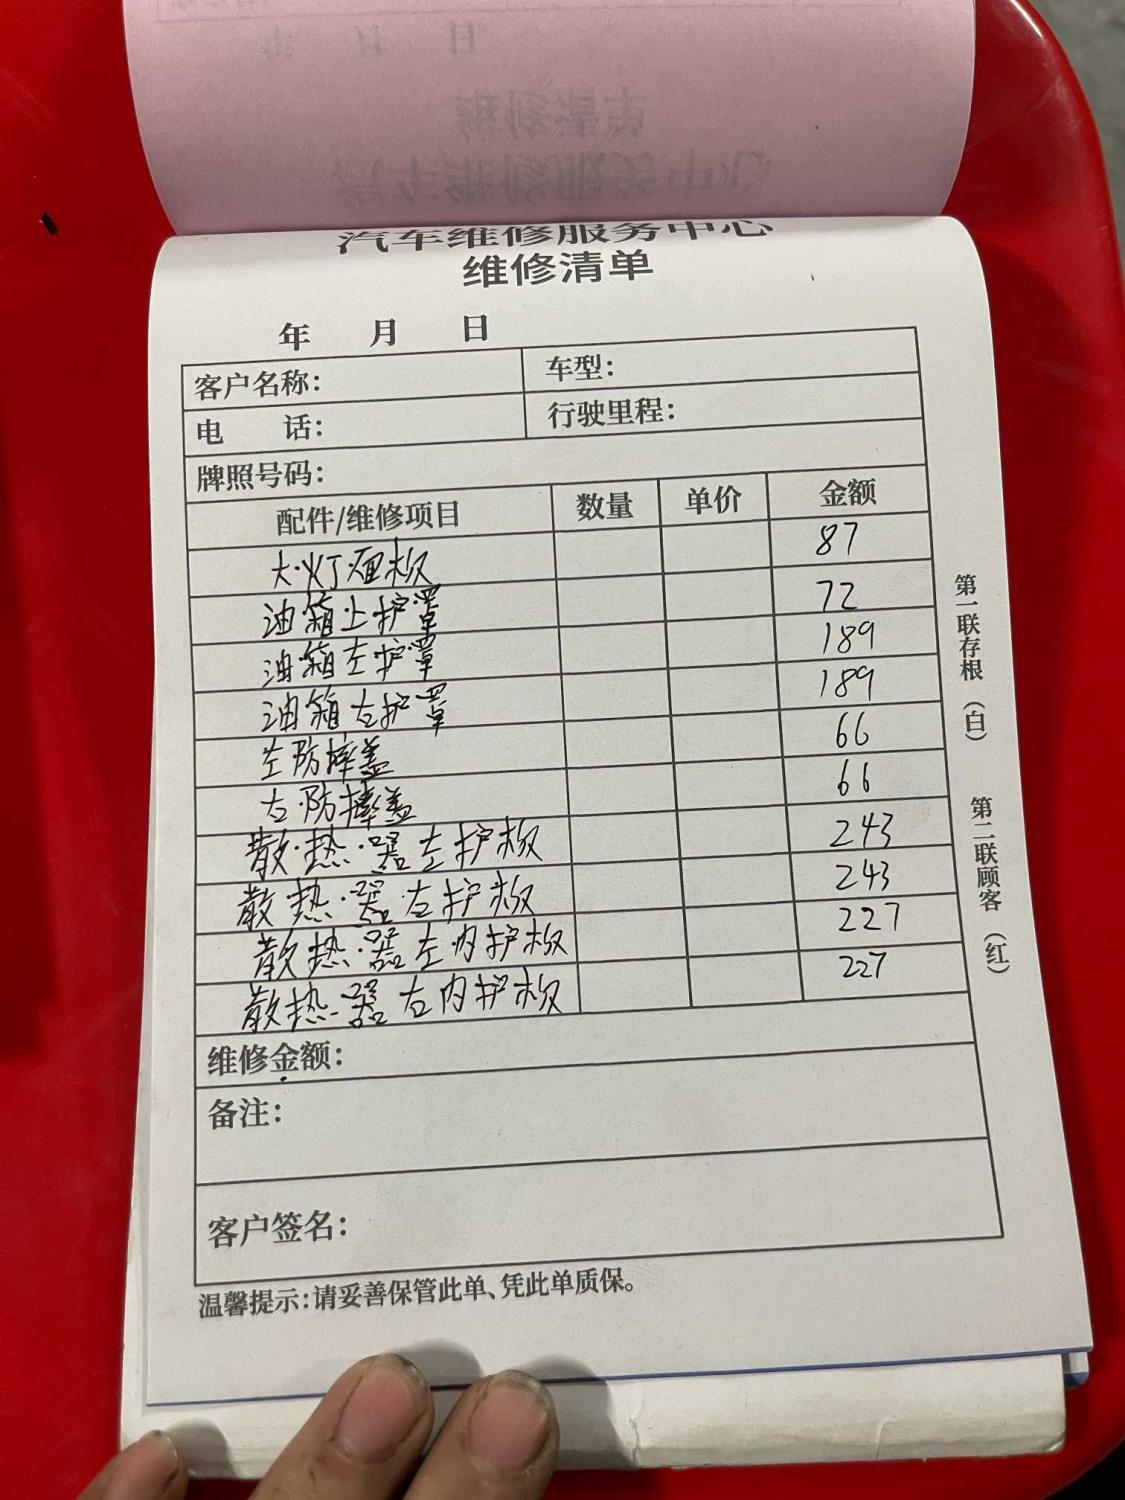 汽车维修服务中心
维修清单
年 月 日
客户名称： 车型：
电 话： 行驶里程：
牌照号码：
配件/维修项目 数量 单价 金额
大灯面板 87
油箱上护罩 72
油箱左护罩 189
油箱右护罩 189
左防摔盖 66
右防摔盖 66
散热器左护板 243
散热器右护板 243
散热器左内护板 227
散热器右内护板 227
维修金额：
备注：
客户签名：
温馨提示：请妥善保管此单、凭此单质保。
第一联存根（白） 第二联顾客（红）